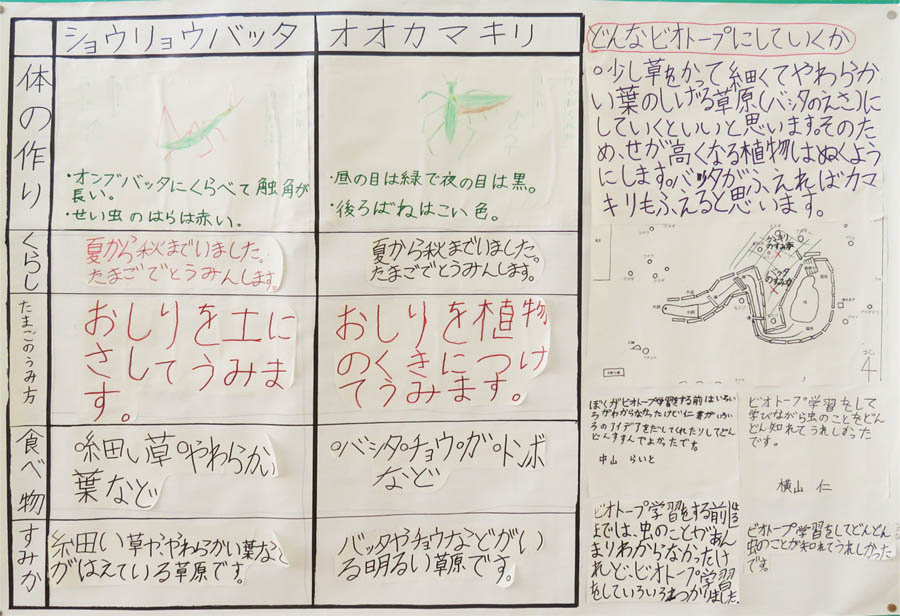 ショウリョウバッタ
オオカマキリ
体の作り
・オンブバッタにくらべて触角が
長い。
・せい虫のはらは赤い。
・昼の目は緑で夜の目は黒。
・後ろばねはこい色。
くらし
夏から秋までいました。
たまごでとうみんします。
夏から秋までいました。
たまごでとうみんします。
たまごのうみ方
おしりを土に
さしてうみま
す。
おしりを植物
のくきにつけ
てうみます。
食べ物
°細い草°やわらかい
葉など
°バッタ°チョウ°ガ°トンボ
など
すみか
細い草や、やわらかい葉など
がはえている草原です。
バッタやチョウなどがい
る明るい草原です。
どんなビオトープにしていくか
°少し草をかって細くてやわらか
い葉のしげる草原(バッタのえさ)に
していくといいと思います。そのた
め、せが高くなる植物はぬくよう
にします。バッタがふえればカマ
キリもふえると思います。
カマキリ
のすみか
バッタ
のすみか
北
ぼくがビオトープ学習をする前はいろい
ろのアイデアをだしてくれたりしてどん
どんすすんでよかったです。
中山 らいと
ビオトープ学習をして
学びながら虫のことをどん
どん知れてうれしかった
です。
横山 仁
ビオトープ学習をする前
までは、虫のことがあん
まりわからなかったけ
れど、ビオトープ学習
をしていろいろ
ビオトープ学習をしてどんどん
虫のことが知れてうれしかった
です。